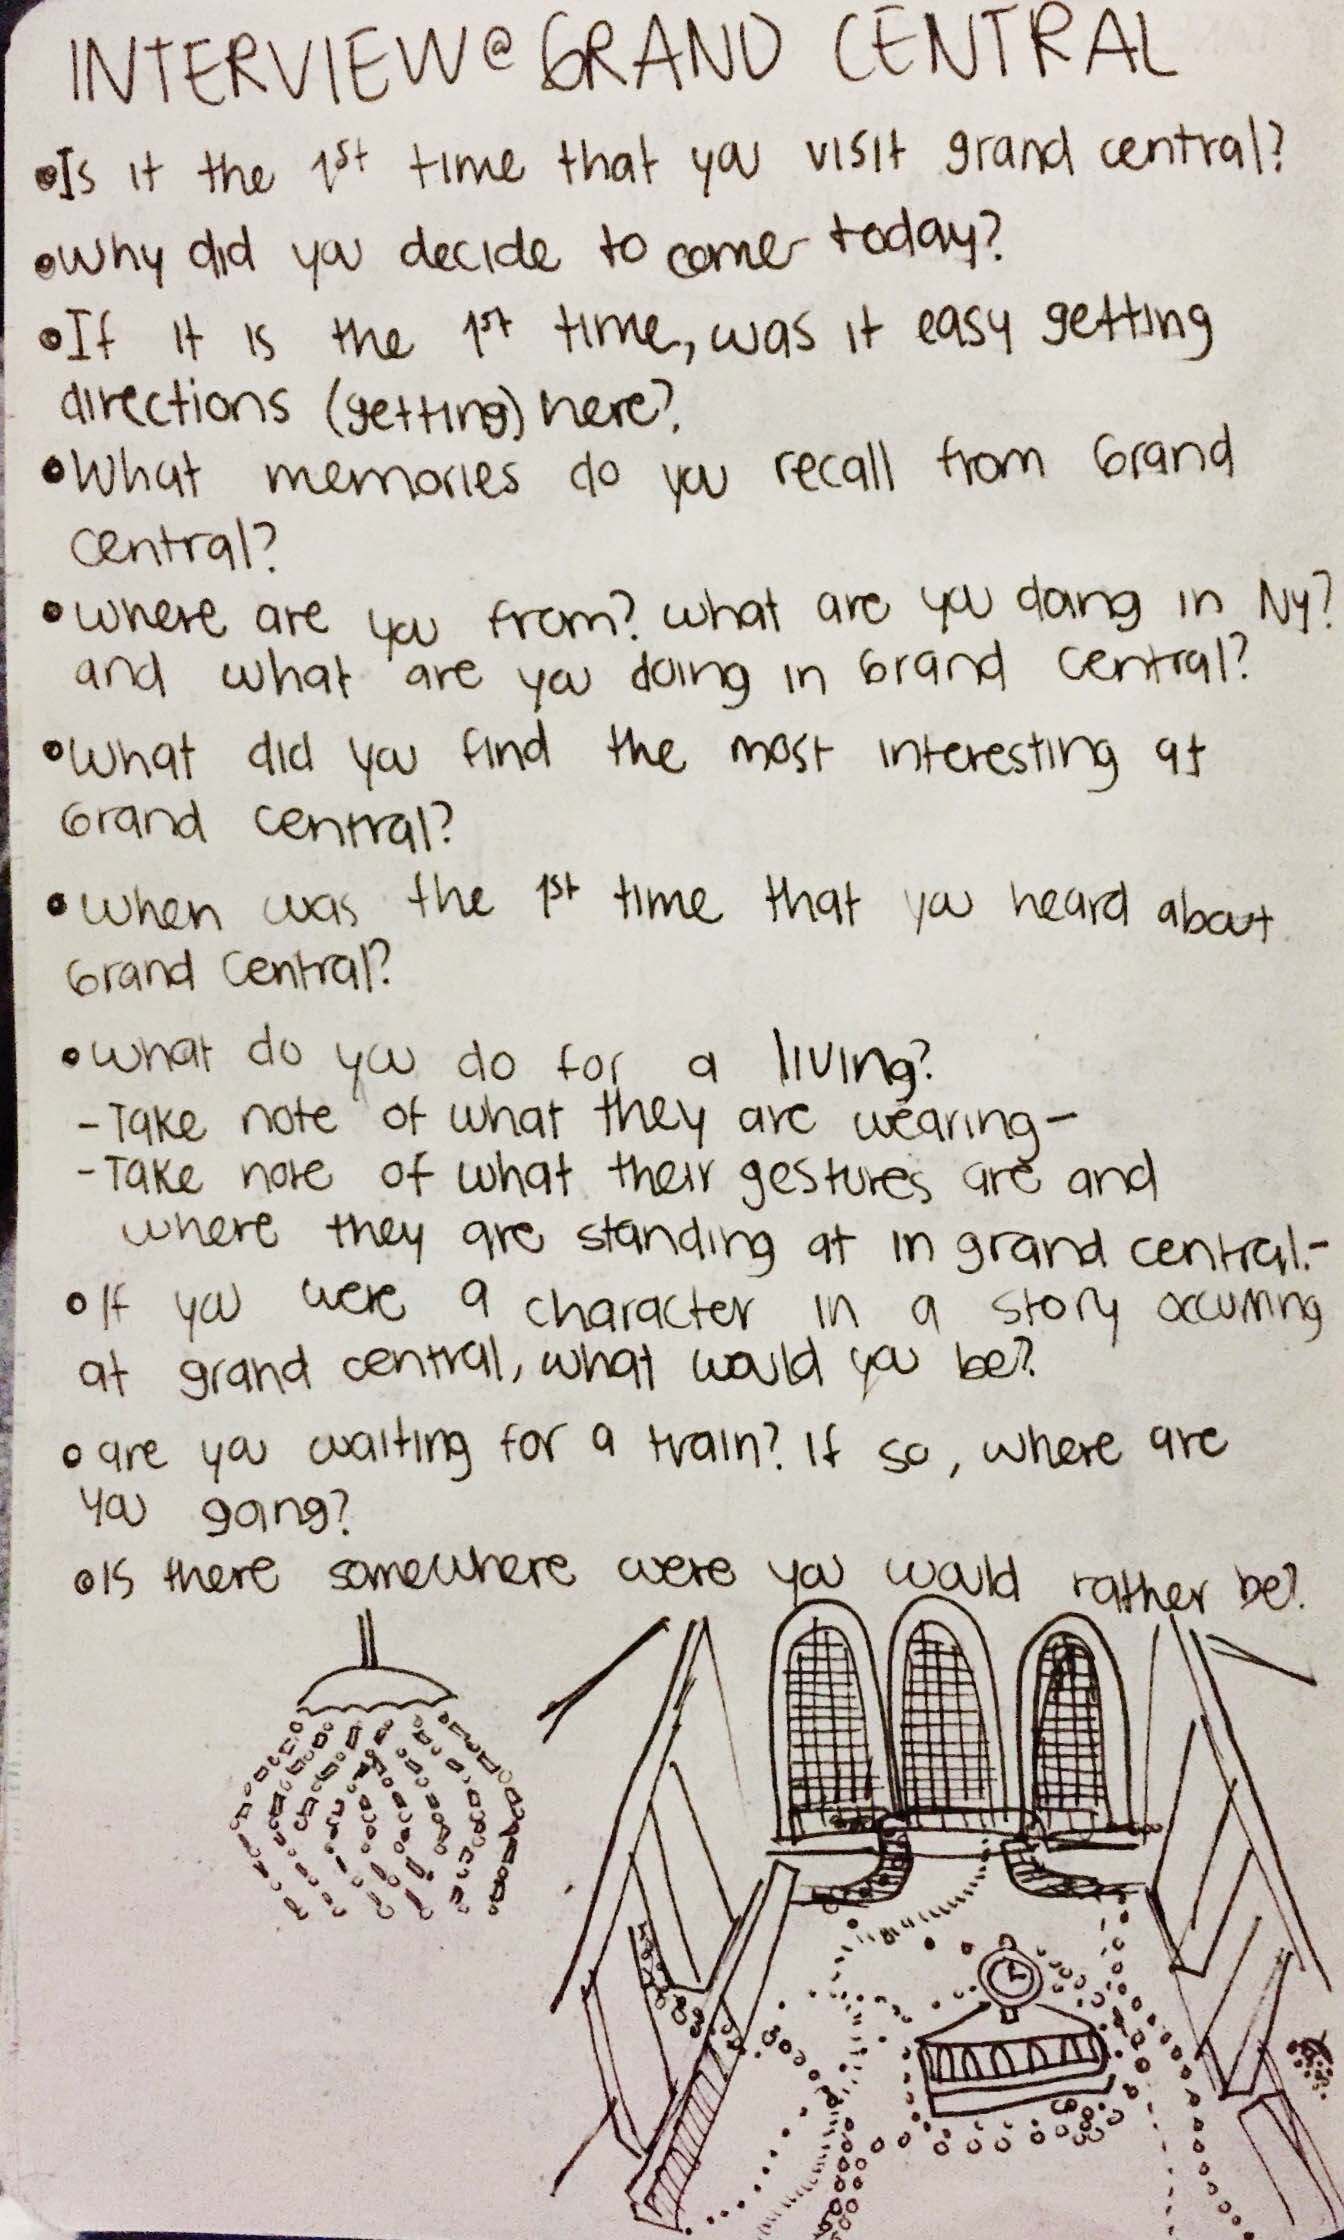 INTERVIEW @ GRAND CENTRAL
•Is it the 1st time that you visit grand central?
•Why did you decide to come today?
•If it is the 1st time, was it easy getting
directions (getting) here?
•What memories do you recall from Grand
central?
•where are you from? what are you doing in Ny?
and what are you doing in Grand Central?
•What did you find the most interesting at
Grand Central?
•when was the 1st time that you heard about
Grand Central?
•what do you do for a living?
-Take note of what they are wearing-
-Take note of what their gestures are and
where they are standing at in grand central.-
•If you were a character in a story occurring
at grand central, what would you be?
•are you waiting for a train? If so, where are
you going?
•Is there somewhere were you would rather be?